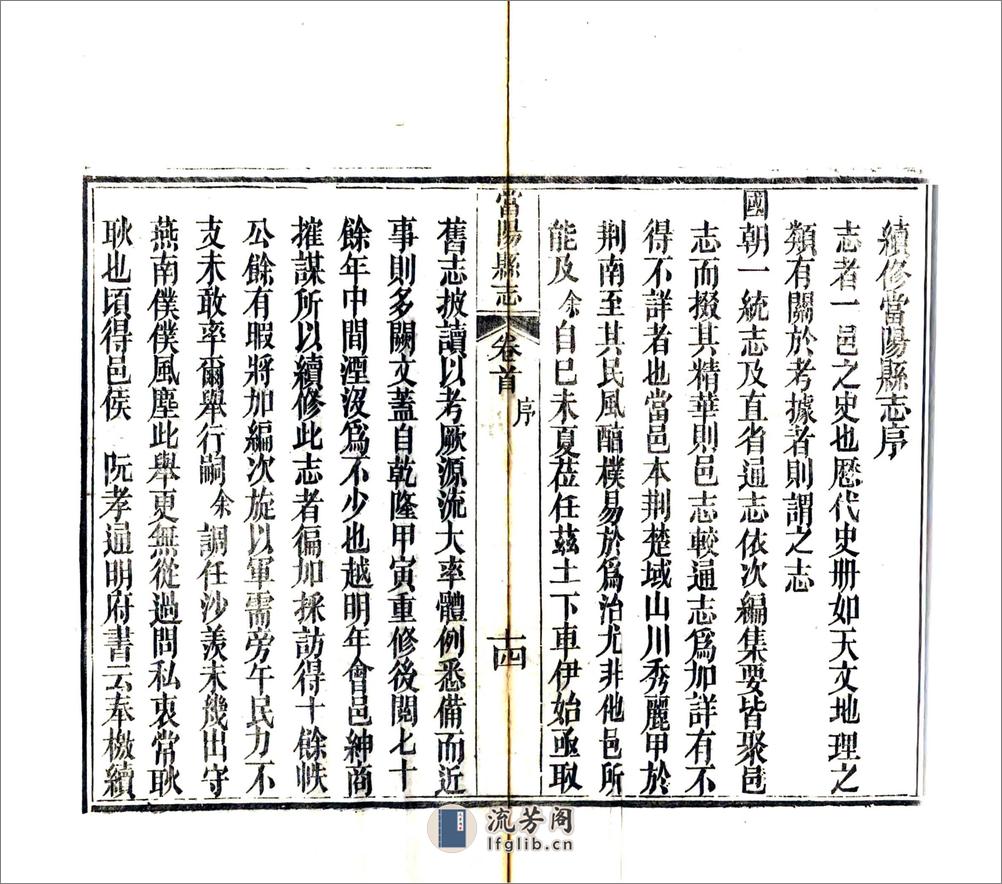 續修當陽縣志序
志者一邑之史也歷代史册如天文地理之
類有關於考據者則謂之志
國朝一統志及直省通志依次編集要皆聚邑
志而掇其精華則邑志較通志爲加詳有不
得不詳者也當邑本荆楚域山川秀麗甲於
荆南至其民風醕樸易於爲治尤非他邑所
能及余自已未夏莅任茲土下車伊始亟取
當陽縣志
卷首
序
十四
舊志披讀以考厥源流大率體例悉備而近
事則多闕文蓋自乾隆甲寅重修後閱七十
餘年中間湮没爲不少也越明年會邑紳商
搉謀所以續修此志者徧加採訪得十餘帙
公餘有暇將加編次旋以軍需旁午民力不
支未敢率爾舉行嗣余調任沙羡未幾出守
燕南僕僕風塵此舉更無從過問私衷常耿
耿也頃得邑侯 阮孝通明府書云奉檄續
流芳阁
lfglib.cn